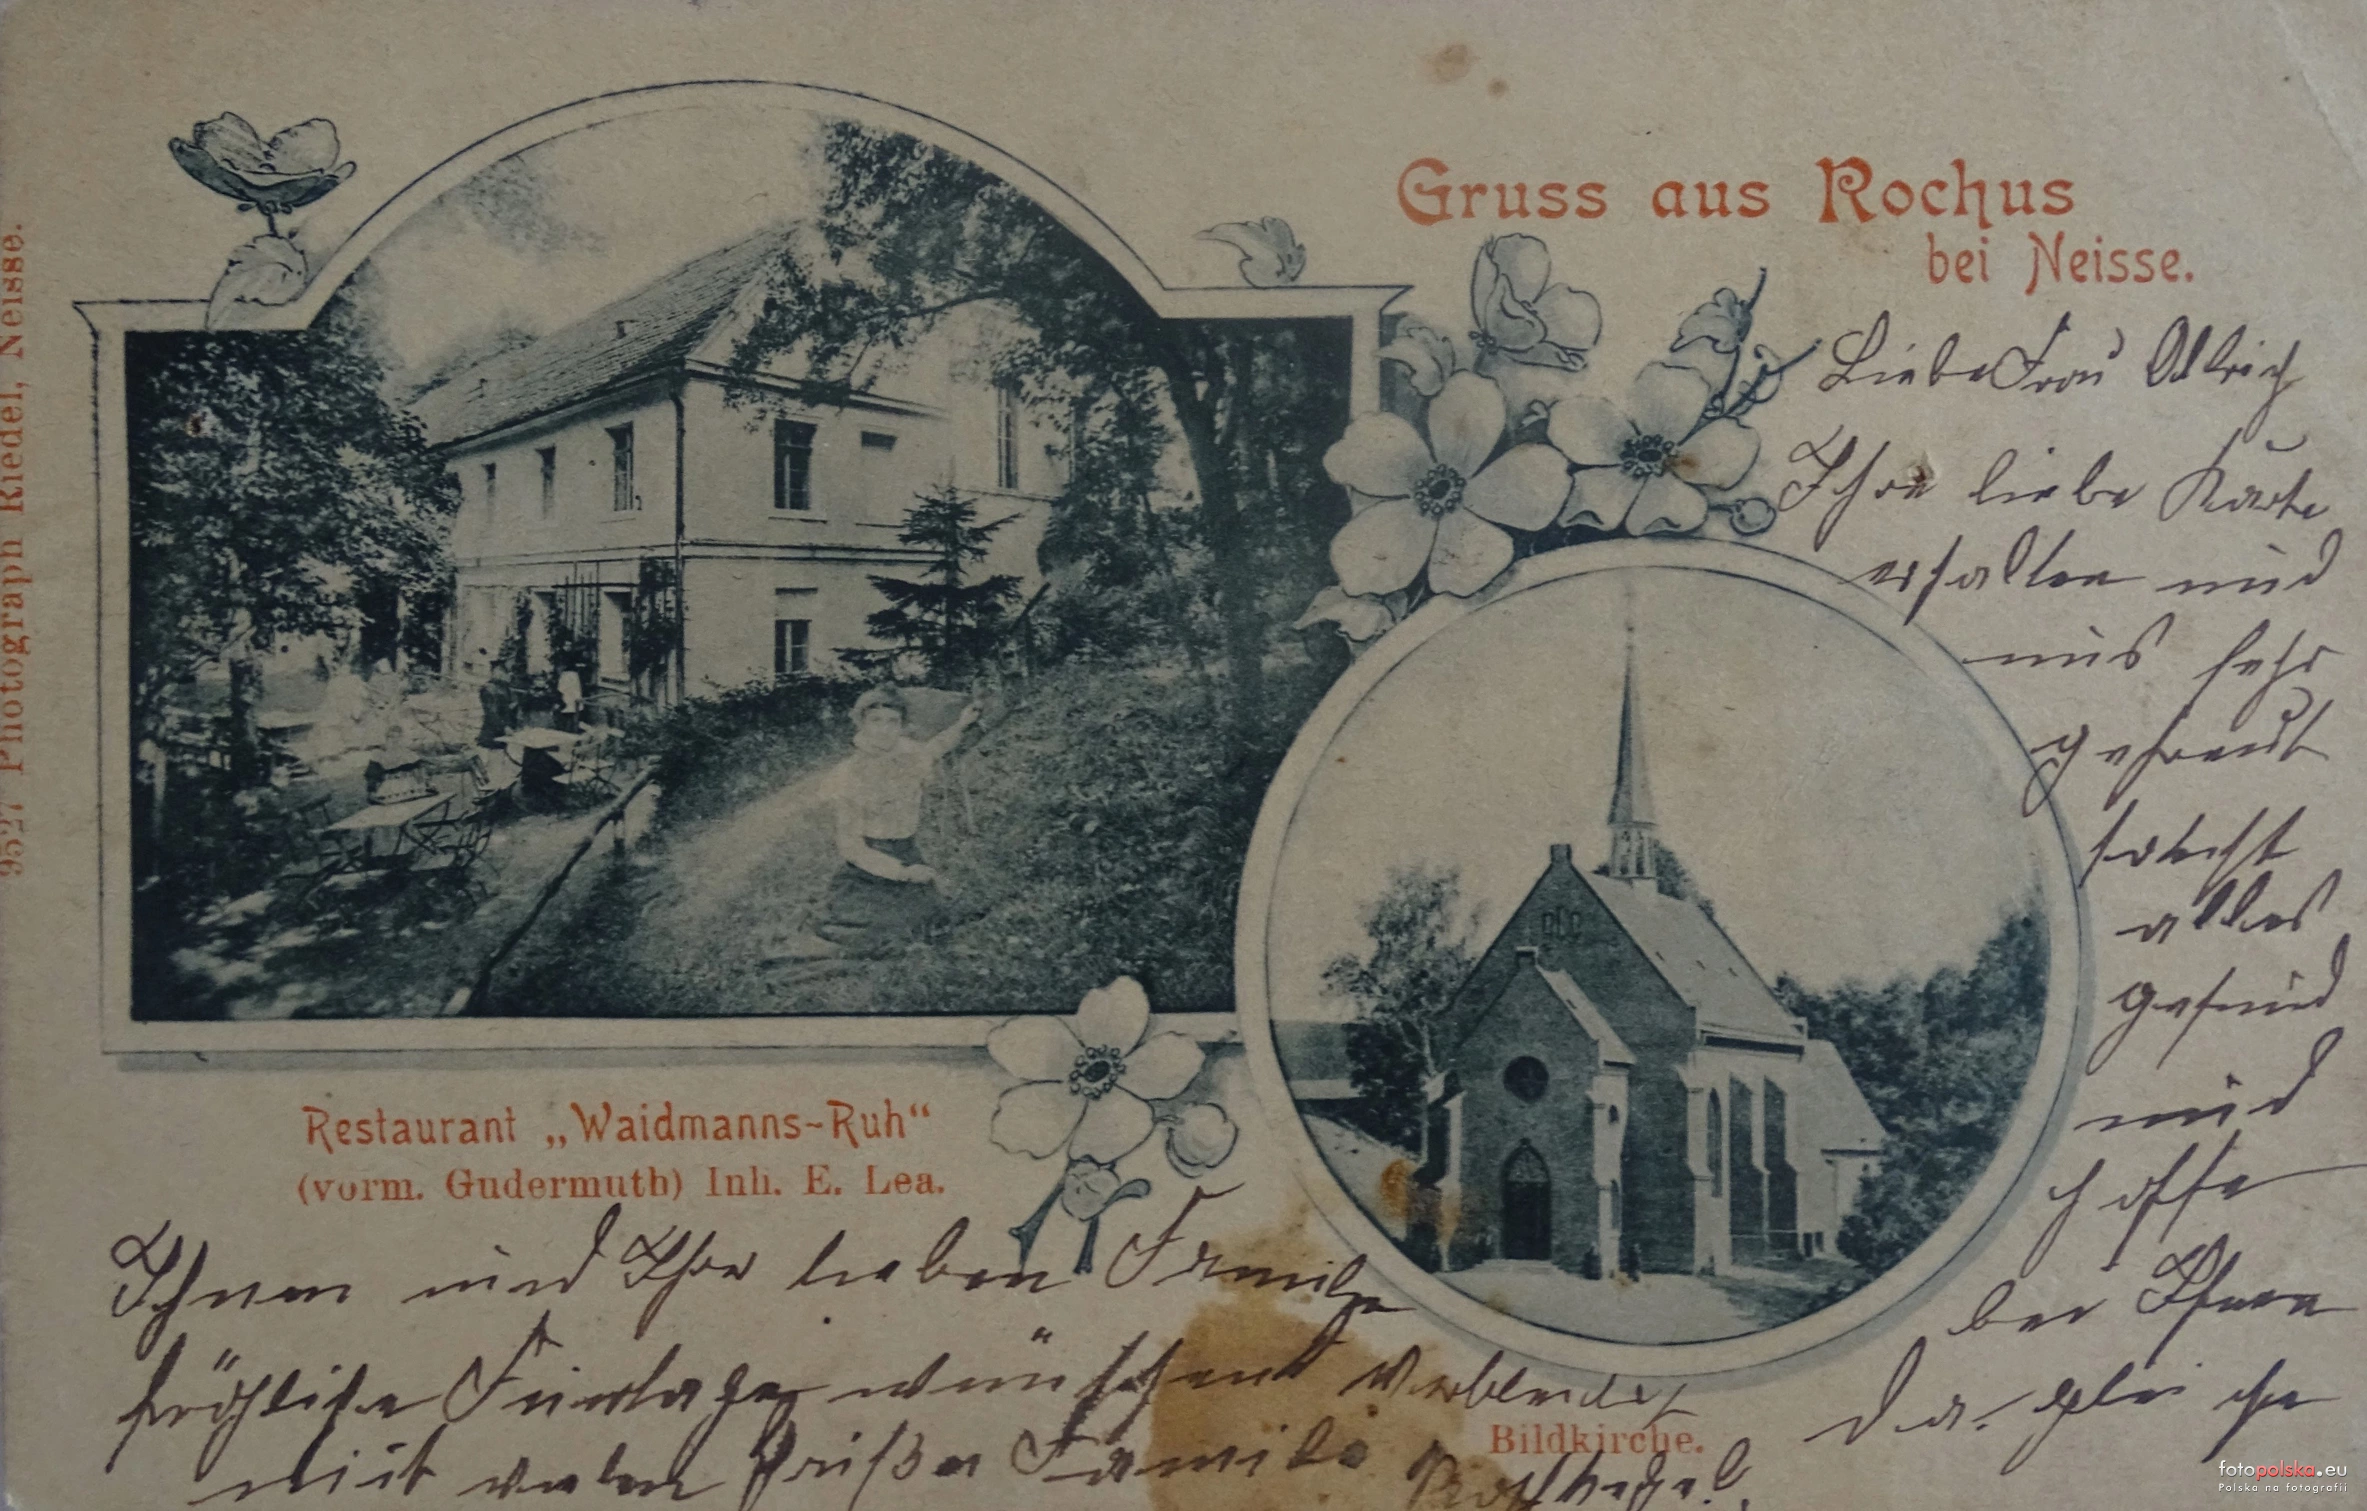 Gruss aus Rochus
bei Neisse.
Liebe Frau
Ihre liebe Karte
erhalten und
uns sehr
gefreut
alles
gesund
und
hoffe
bei Ihnen
da. gleiche
9527 Photograph Riedel, Neisse.
Restaurant „Waidmanns-Ruh“
(vorm. Gudermuth) Inh. E. Lea.
Ihnen und Ihre lieben Familie
fröhliche Feiertage wünschend verbleibe
mit vielen Grüßen Familie
Bildkirche.
fotopolska.eu
Polska na fotografii